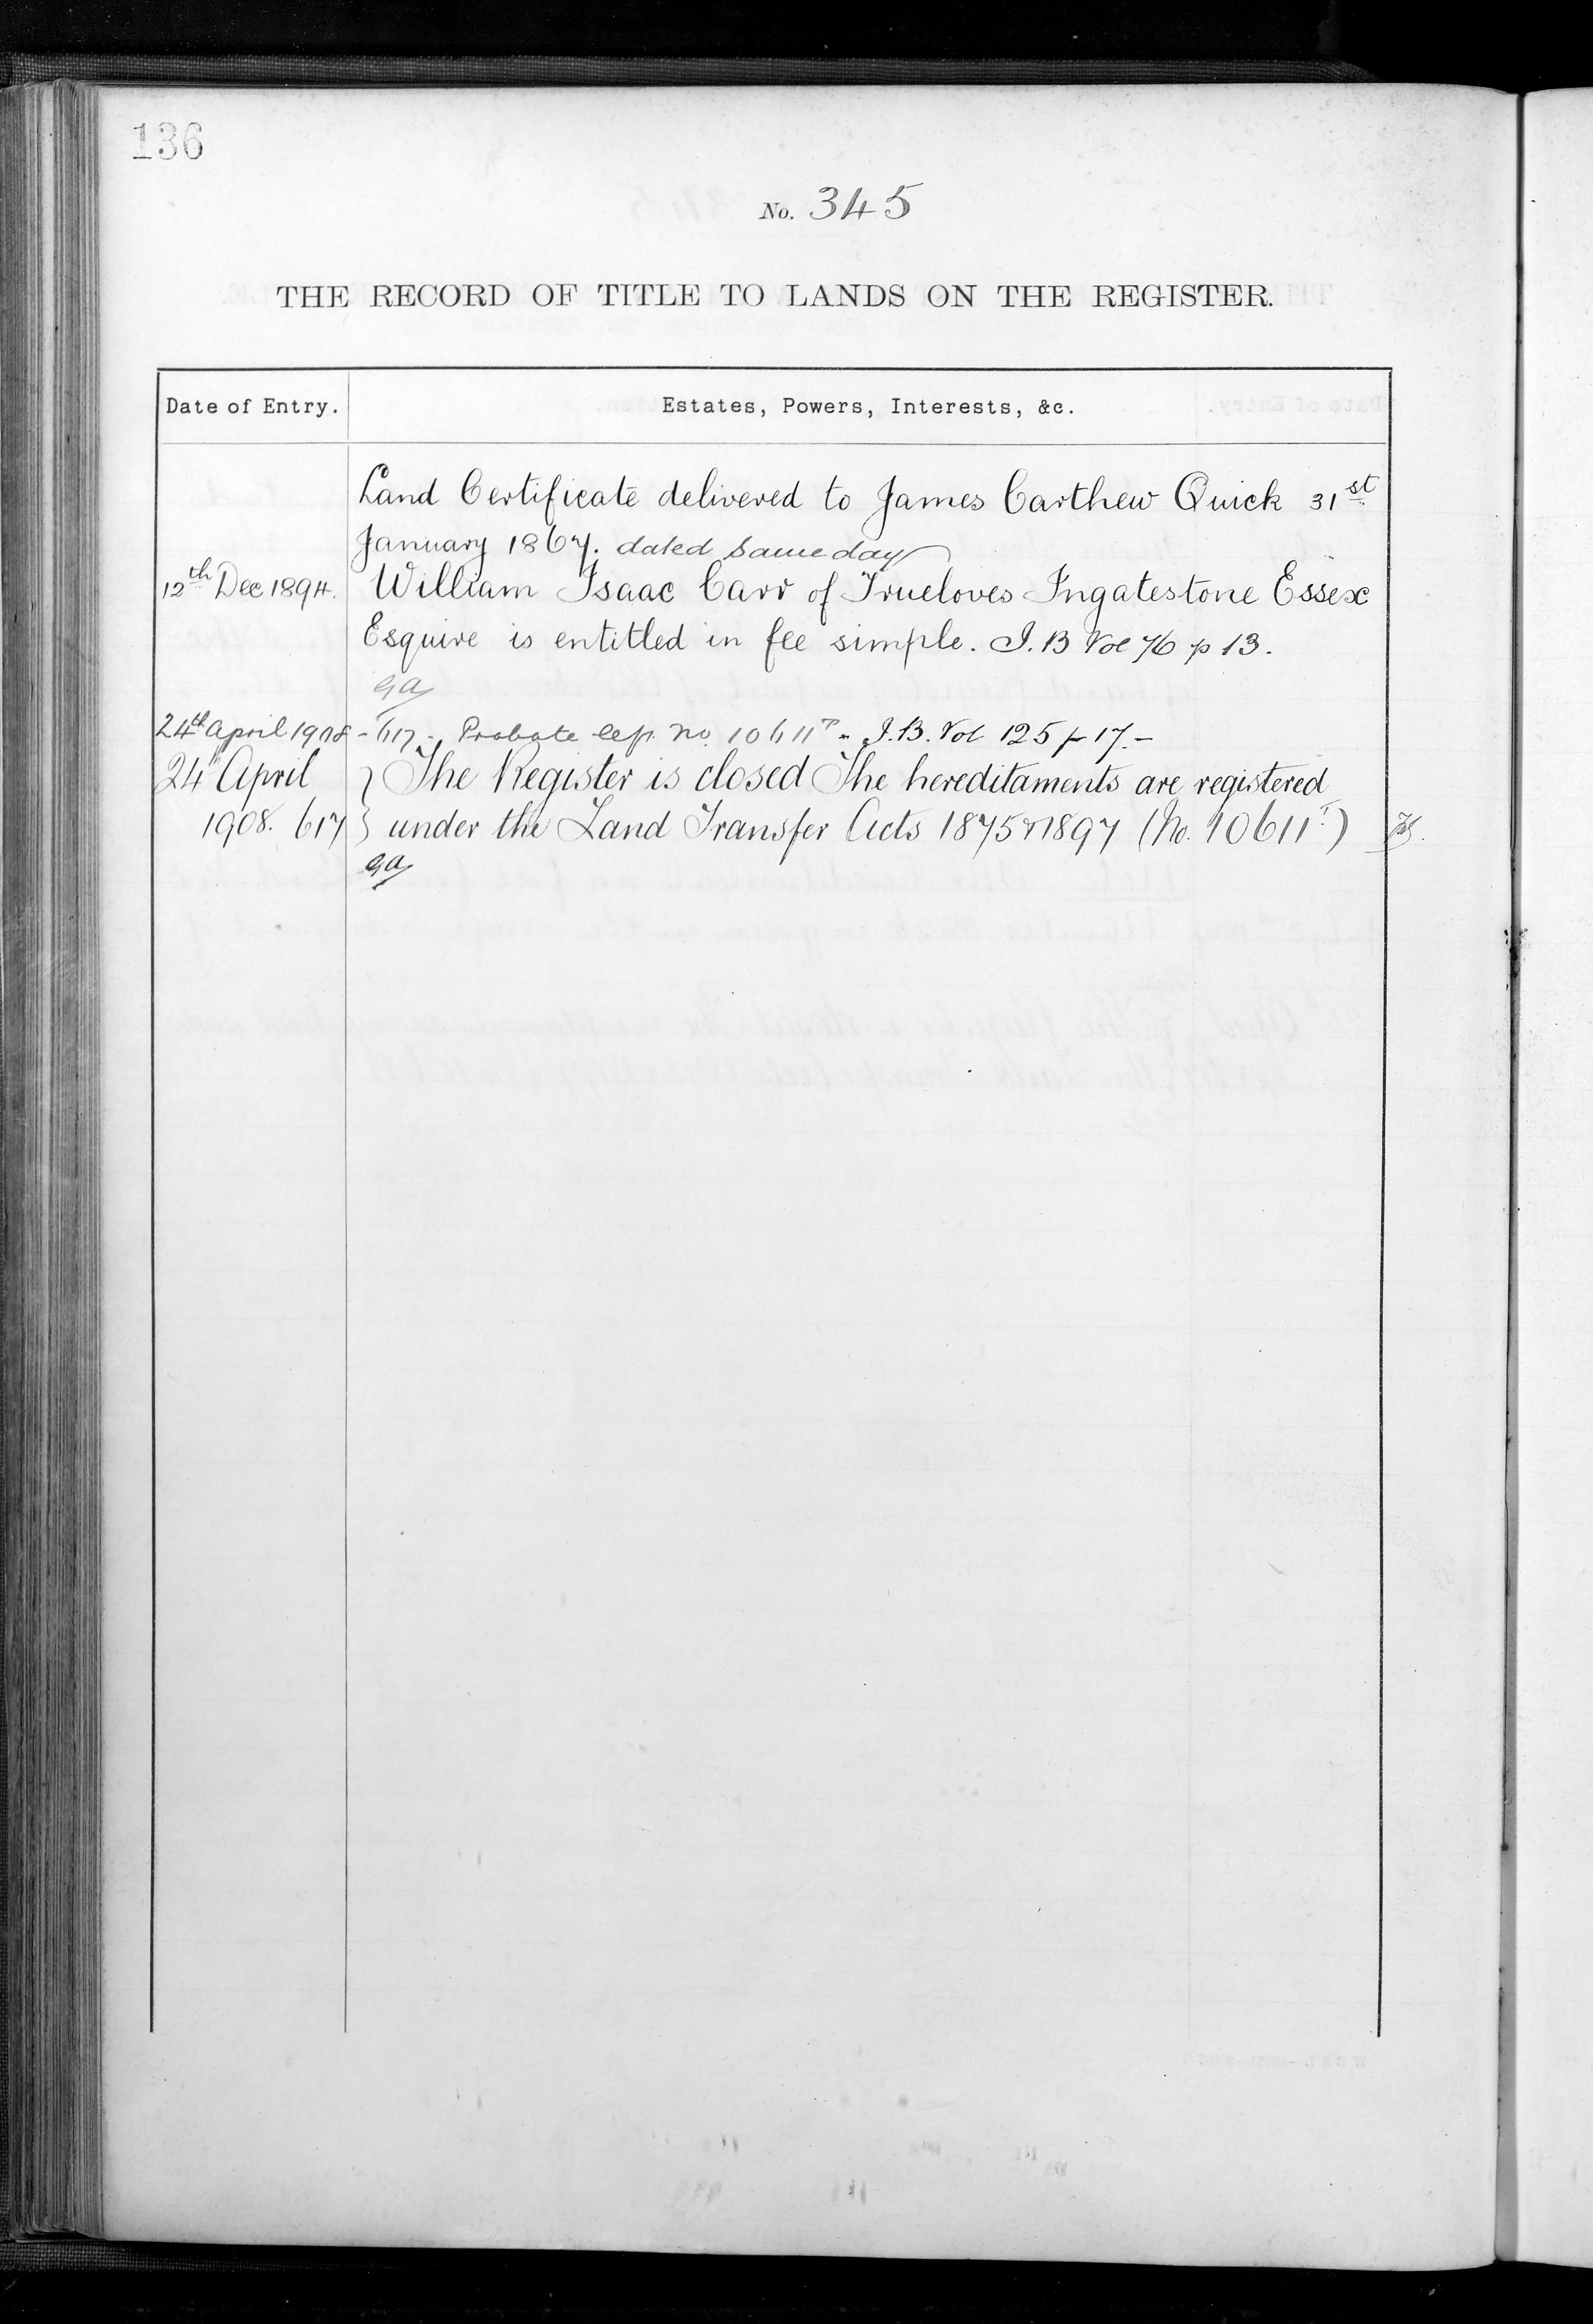 136
No. 345
THE RECORD OF TITLE TO LANDS ON THE REGISTER.
Date of Entry. Estates, Powers, Interests, &c.
Land Certificate delivered to James Carthew Quick 31st
January 1867. dated same day
12th Dec 1894. William Isaac Carr of Trueloves Ingatestone Essex
Esquire is entitled in fee simple. I. B Vol 76 p 13.
GA
24th April 1908 - 617 - Probate No. 10611 T - I. B. Vol 125 p 17. -
24th April } The Register is closed The hereditaments are registered
1908. 617 } under the Land Transfer Acts 1875 & 1897 (No. 10611 T.)
GA